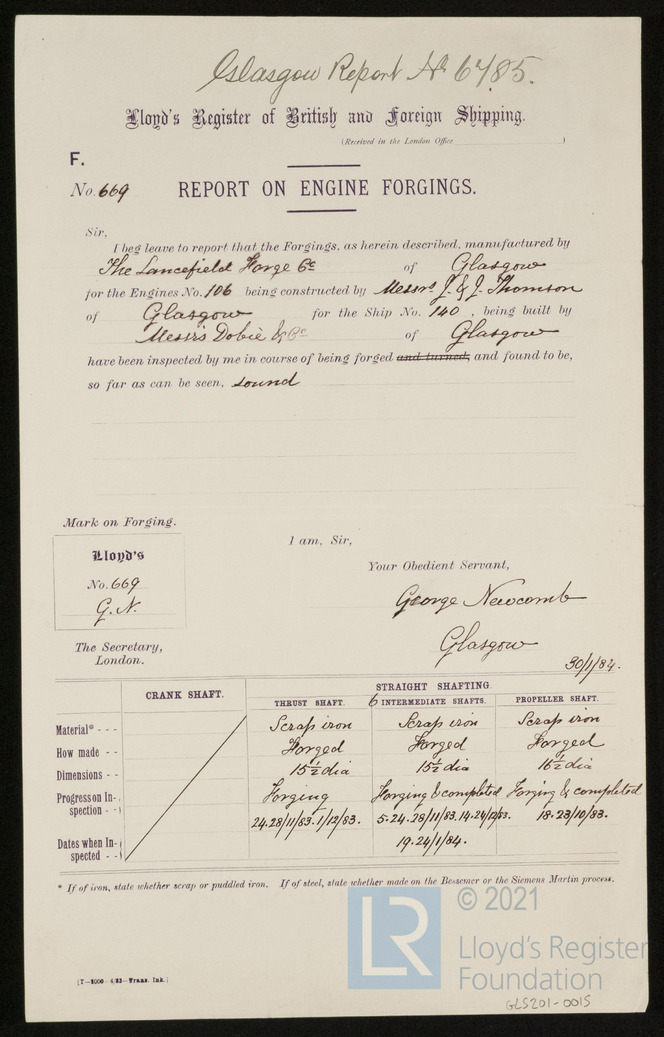 Glasgow Report No 6785.
Lloyd's Register of British and Foreign Shipping.
(Received in the London Office )
F.
No. 669 REPORT ON ENGINE FORGINGS.
Sir,
I beg leave to report that the Forgings, as herein described, manufactured by
The Lancefield Forge Co of Glasgow
for the Engines No. 106 being constructed by Messrs J. & J. Thomson
of Glasgow for the Ship No. 140, being built by
Messrs Dobie & Co of Glasgow
have been inspected by me in course of being forged and turned, and found to be,
so far as can be seen, sound
Mark on Forging.
Lloyd's
No. 669
G.N.
I am, Sir,
Your Obedient Servant,
George Newcomb
Glasgow
30/1/84.
The Secretary,
London.
CRANK SHAFT. STRAIGHT SHAFTING.
THRUST SHAFT. 6 INTERMEDIATE SHAFTS. PROPELLER SHAFT.
Material* - - Scrap iron Scrap iron Scrap iron
How made - - Forged Forged Forged
Dimensions - - 15½ dia 15½ dia 16½ dia
Progress on In- Forging Forging & completed Forging & completed
spection - -
24.28/11/83. 1/12/83. 5.24.28/11/83. 14.24/12/83. 18.23/10/83.
Dates when In- 19.24/1/84.
spected - -
* If of iron, state whether scrap or puddled iron. If of steel, state whether made on the Bessemer or the Siemens Martin process.
LR
© 2021
Lloyd's Register
Foundation
[T—2000—6/83—Trans. Ink.]
GLS201-0015